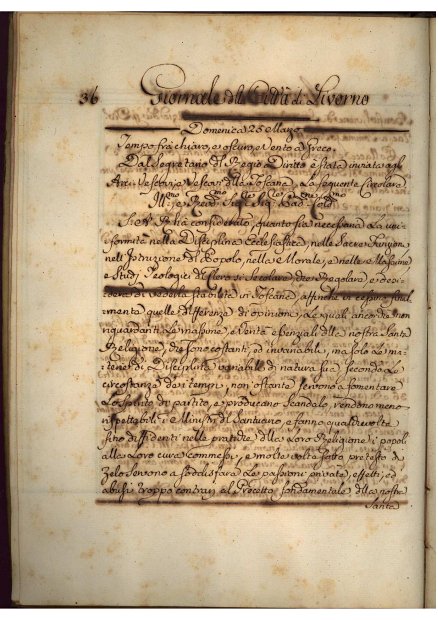 36 Giornale della Città di Livorno
Domenica 25 Marzo
Tempo frà chiaro, e oscuro, e vento a Greco.
Dal Segretario del Regio Diritto è stata inviata agli
Arcivescovi, e Vescovi della Toscana, la seguente Circolare
S. A. R. ha considerato, quanto sia necessaria la uni=
formità nella Disciplina Ecclesiastica, nelle Sacre Funzioni
nell'Istruzione del Popolo, nella Morale, e nelle Massime
e Studj Teologici del Clero sì Secolare, che Regolare, e desi=
dera di vederla stabilita in Toscana, affinche vi cessino final=
mente quelle differenze di opinioni, le quali ancorche non
riguardanti le massime, e verità essenziali della nostra Santa
Religione, che sono costanti, ed invariabili, ma solo le ma=
terie di Disciplina variabili di natura sua secondo le
circostanze dei tempi, non ostante servono a fomentare
lo spirito di partito, e producono scandalo, rendono meno
rispettabili i Ministri del Santuario, e fanno qualche volta
sino diffidenti nelle pratiche della loro Religione i popoli
alla loro cura commessi, e molte volte sotto pretesto di
zelo servono a sodalisfare le passioni private, effetti, ed
abusi troppo contrarj al Precetto fondamentale della nostra
Santa